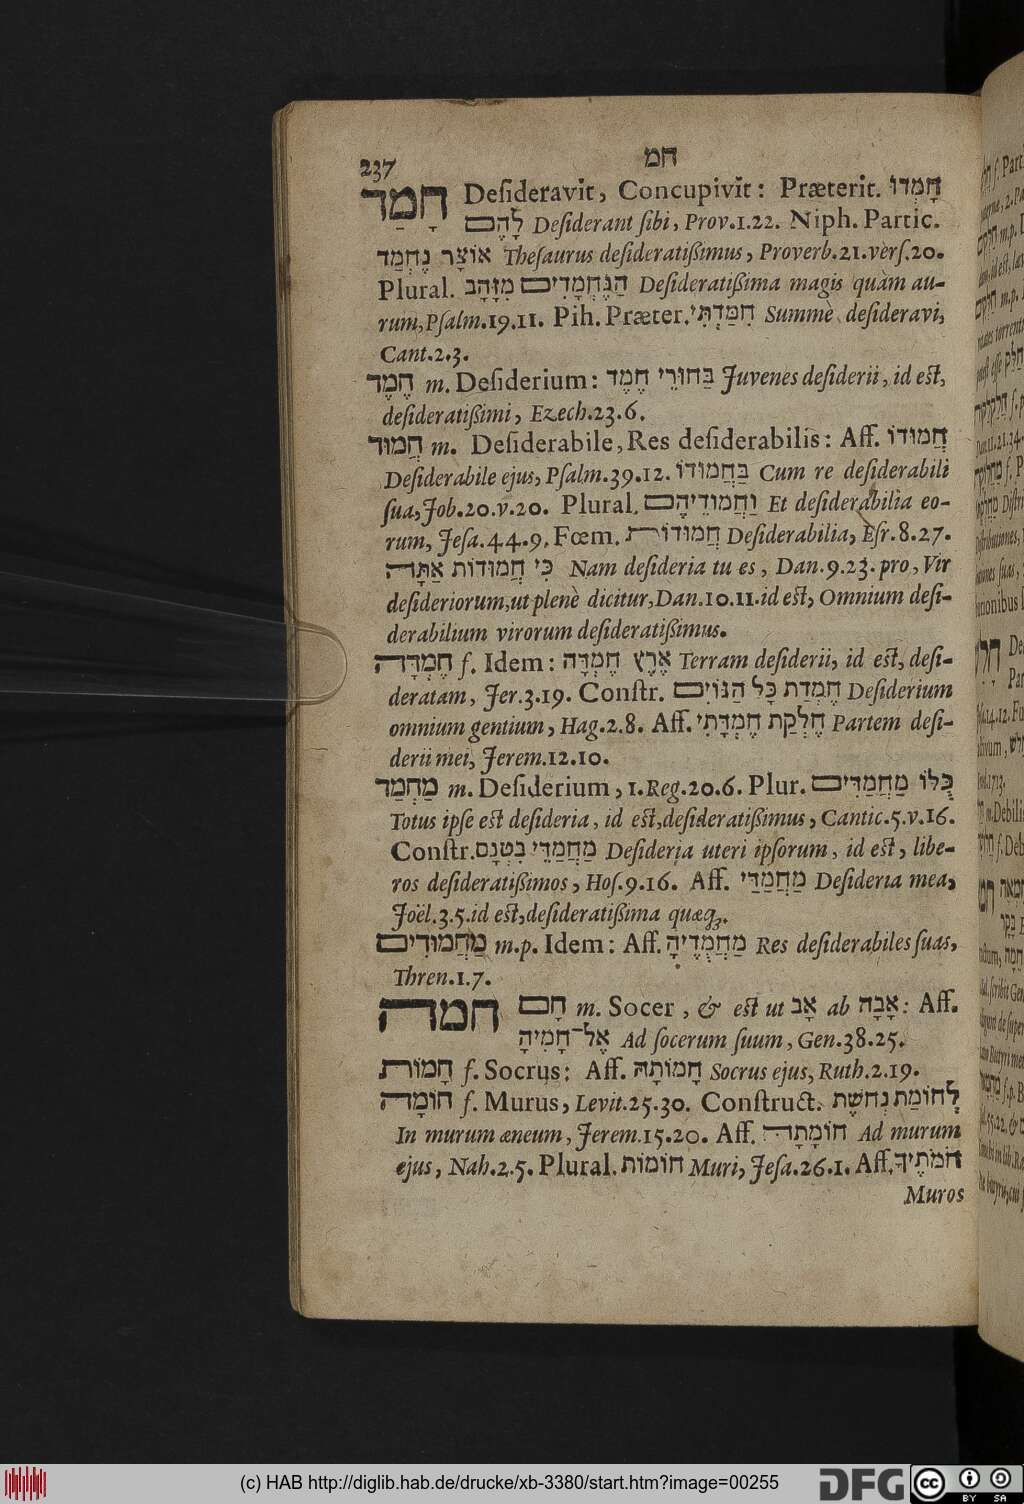 237 חמ
חָמַד Deſideravit, Concupivit: Præterit. חָמְדוּ
לָהֶם Deſiderant ſibi, Prov.1.22. Niph. Partic.
אוֹצָר נֶחְמַד Theſaurus deſideratiſſimus, Proverb.21.verſ.20.
Plural. הַנֶּחְמָדִים מִזָּהָב Deſideratiſſima magis quàm au-
rum, Pſalm.19.11. Pih. Præter. חִמַּדְתִּי Summè deſideravi,
Cant.2.3.
חֶמֶד m. Deſiderium: בַּחוּרֵי חֶמֶד Juvenes deſiderii, id eſt,
deſideratiſſimi, Ezech.23.6.
חֲמוּד m. Deſiderabile, Res deſiderabilis: Aff. חֲמוּדוֹ
Deſiderabile ejus, Pſalm.39.12. בַּחֲמוּדוֹ Cum re deſiderabili
ſua, Job.20.v.20. Plural. וַחֲמוּדֵיהָם Et deſiderabilia eo-
rum, Jeſa.44.9. Fœm. חֲמוּדוֹת Deſiderabilia, Eſr.8.27.
כִּי חֲמוּדוֹת אַתָּה Nam deſideria tu es, Dan.9.23. pro, Vir
deſideriorum, ut plenè dicitur, Dan.10.11. id eſt, Omnium deſi-
derabilium virorum deſideratiſſimus.
חֶמְדָּה f. Idem: אֶרֶץ חֶמְדָּה Terram deſiderii, id eſt, deſi-
deratam, Jer.3.19. Conſtr. חֶמְדַת כָּל הַגּוֹיִם Deſiderium
omnium gentium, Hag.2.8. Aff. חֶלְקַת חֶמְדָּתִי Partem deſi-
derii mei, Jerem.12.10.
מַחְמַד m. Deſiderium, 1.Reg.20.6. Plur. כֻּלּוֹ מַחֲמַדִּים
Totus ipſe eſt deſideria, id eſt, deſideratiſſimus, Cantic.5.v.16.
Conſtr. מַחֲמַדֵּי בִטְנָם Deſideria uteri ipſorum, id eſt, libe-
ros deſideratiſſimos, Hoſ.9.16. Aff. מַחֲמַדַּי Deſideria mea,
Joël.3.5. id eſt, deſideratiſſima quæq;.
מַחֲמוּדִים m.p. Idem: Aff. מַחֲמֻדֶיהָ Res deſiderabiles ſuas,
Thren.1.7.
חמה חָם m. Socer, & eſt ut אָב ab אָבָה: Aff.
אֶל־חָמִיהָ Ad ſocerum ſuum, Gen.38.25.
חָמוֹת f. Socrus: Aff. חָמוֹתָהּ Socrus ejus, Ruth.2.19.
חוֹמָה f. Murus, Levit.25.30. Conſtruct. לְחוֹמַת נְחֹשֶׁת
In murum æneum, Jerem.15.20. Aff. חוֹמָתָהּ Ad murum
ejus, Nah.2.5. Plural. חוֹמוֹת Muri, Jeſa.26.1. Aff. חֹמֹתֶיךָ
Muros
(c) HAB http://diglib.hab.de/drucke/xb-3380/start.htm?image=00255
DFG cc BY SA